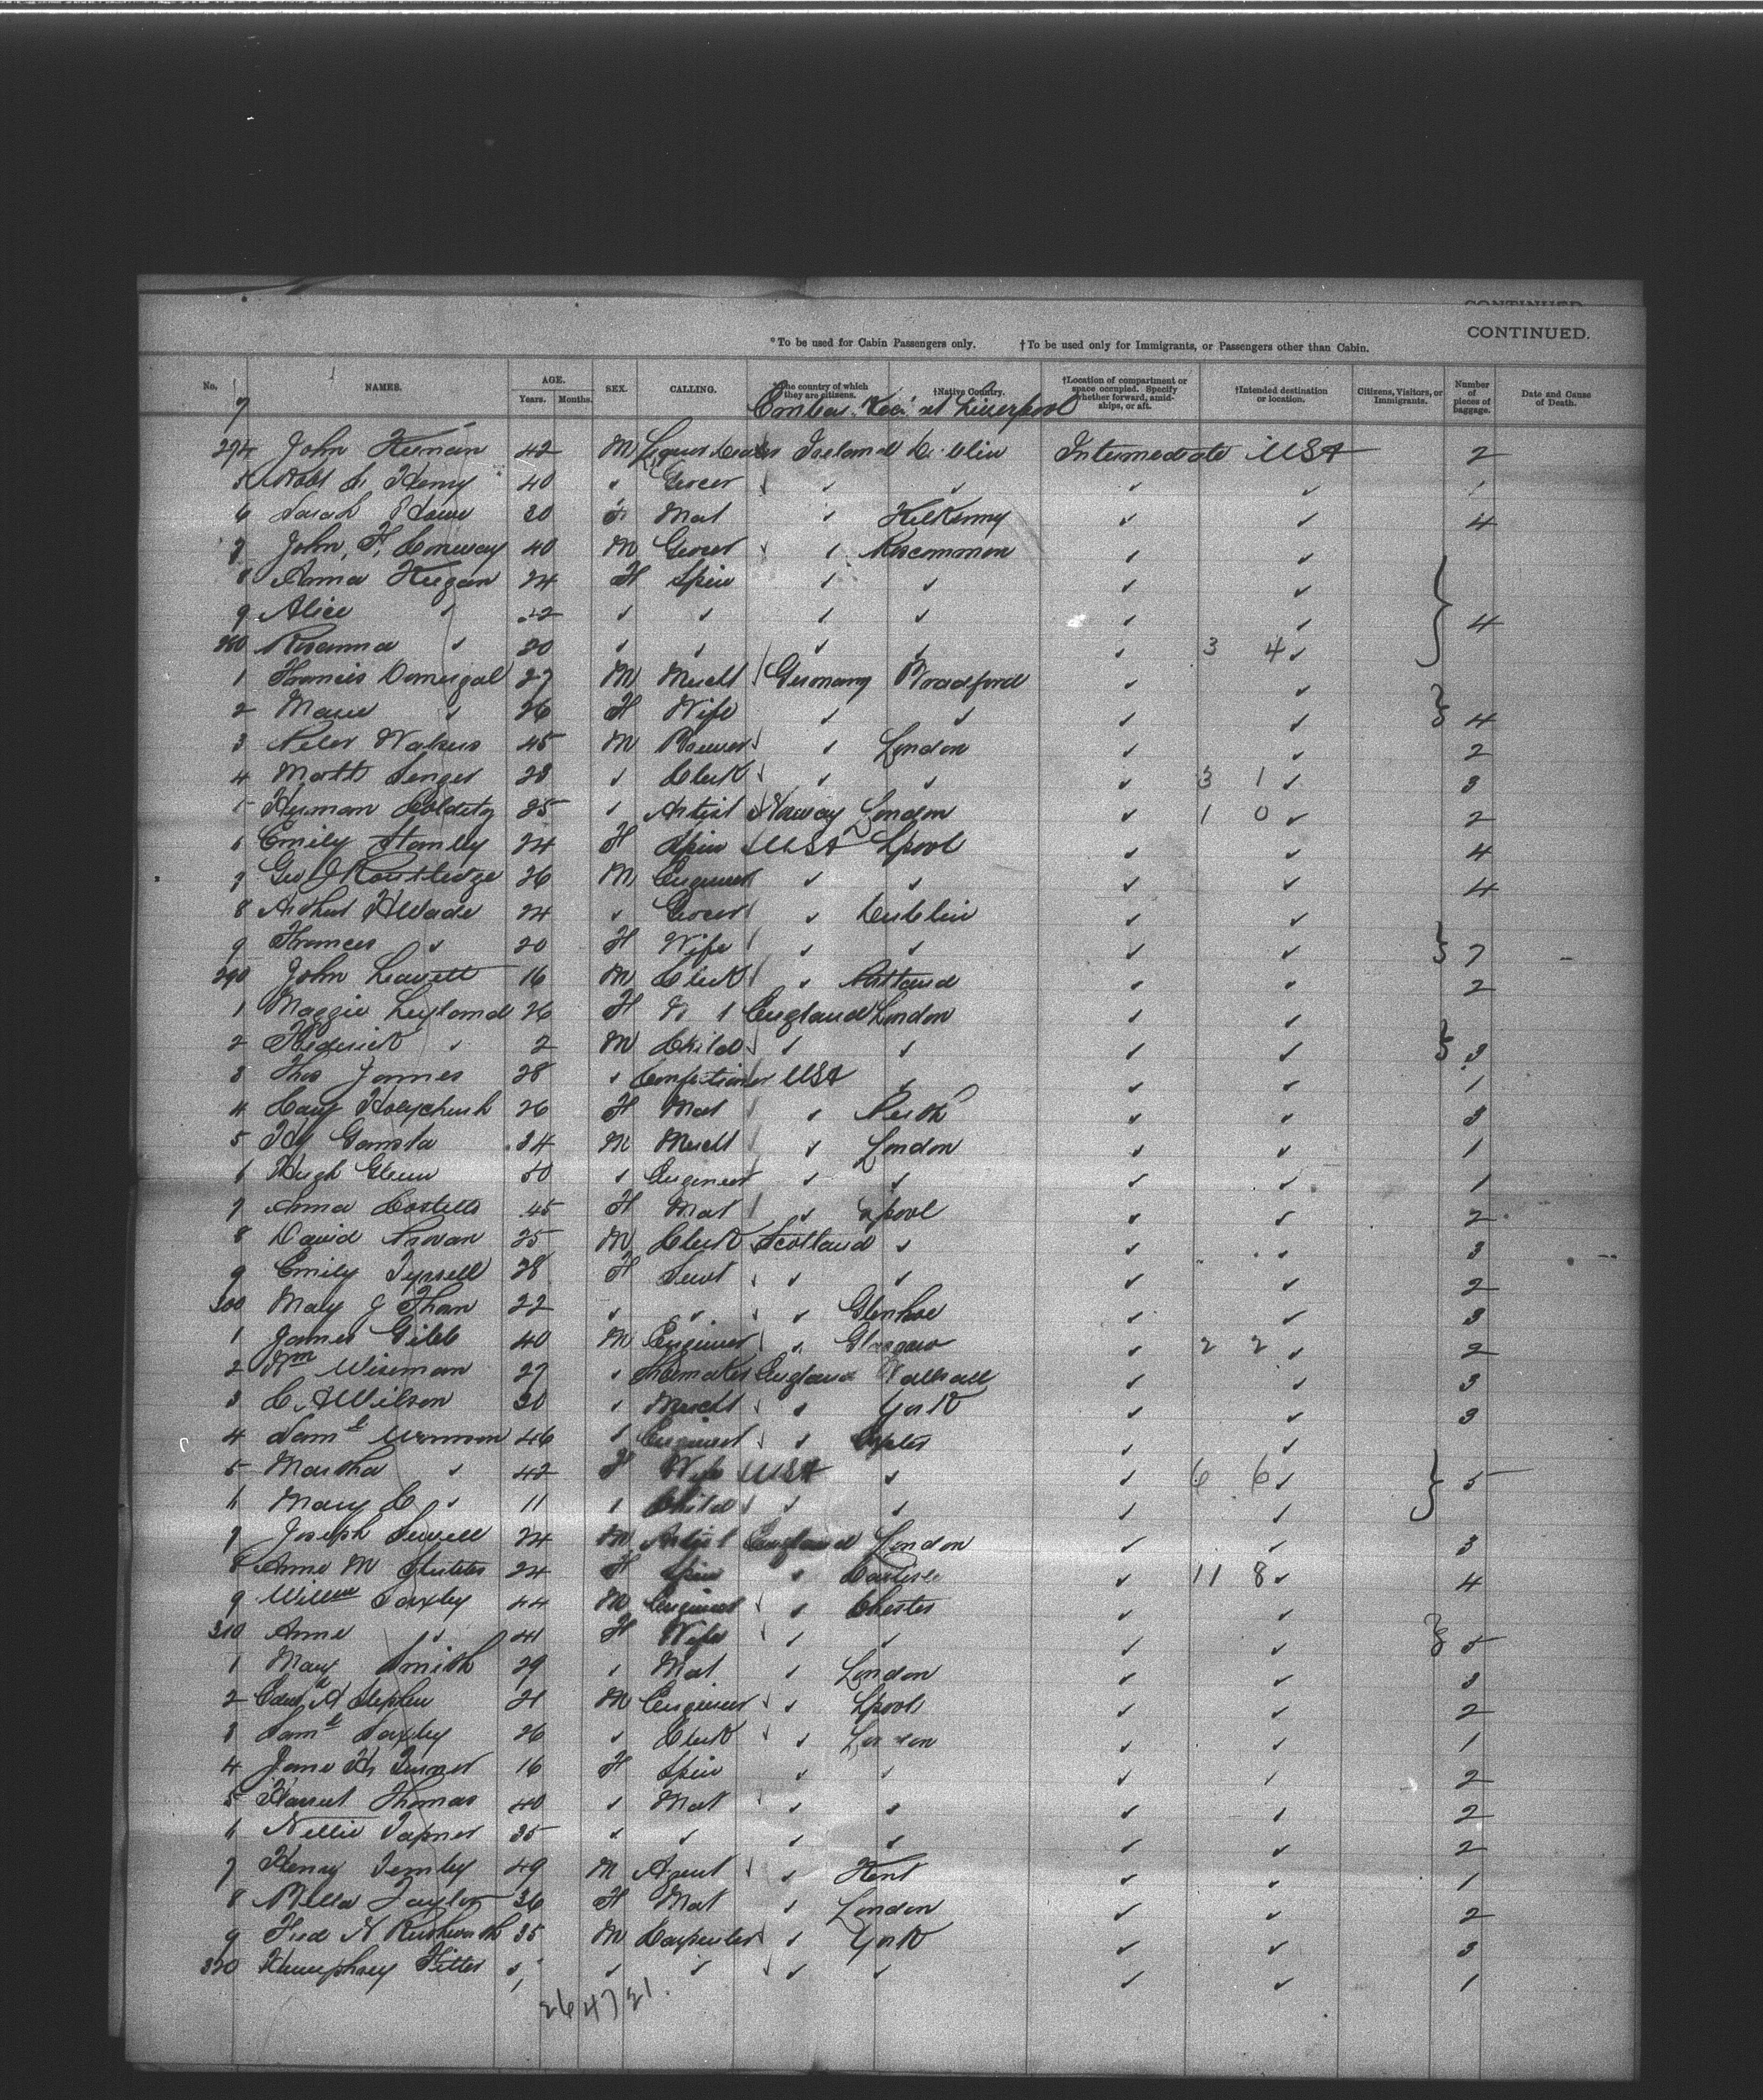 CONTINUED.
CONTINUED.
*To be used for Cabin Passengers only. †To be used only for Immigrants, or Passengers other than Cabin.
No. NAMES. AGE. Years. Months. SEX. CALLING. The country of which they are citizens. †Native Country. †Location of compartment or space occupied. Specify whether forward, amidships, or aft. †Intended destination or location. Citizens, Visitors, or Immigrants. Number of pieces of baggage. Date and Cause of Death.
7 at Liverpool
274 John 42 M Liquor Ireland Intermediate USA 2
5 Henry 40 ✓ Grocer ✓ ✓ ✓ ✓
6 Sarah Howe 30 Mat ✓ Kilkenny ✓ ✓ 4
7 John F. Conway 40 M Grocer ✓ Roscommon ✓ ✓
8 Anna Keegan 24 F Spin ✓ ✓ ✓ ✓
9 Alice ✓ 22 ✓ ✓ ✓ ✓ ✓ ✓ } 4
280 Rosanna ✓ 20 ✓ ✓ ✓ ✓ ✓ 3 4 ✓
1 Francis 27 M Mercht Germany Bradford ✓ ✓
2 Marie ✓ 26 F Wife ✓ ✓ ✓ ✓ } 4
3 Peter 45 M Brewer ✓ London ✓ ✓ 2
4 Senger 28 ✓ Clerk ✓ ✓ ✓ 3 1 ✓ 3
5 Herman 25 ✓ Artist Norway London ✓ 1 0 ✓ 2
6 Emily Hanley 24 F Spin USA Lpool ✓ ✓ 4
7 Geo J Routledge 26 M Engineer ✓ ✓ ✓ ✓ 4
8 Arthur H Wade 24 ✓ Grocer ✓ Dublin ✓ ✓
9 Frances ✓ 20 F Wife ✓ ✓ ✓ ✓ } 7
290 John Leavett 16 M Clerk ✓ ✓ ✓ 2
1 Maggie Leyland 26 F England London ✓ ✓
2 Frederick ✓ 2 M Child ✓ ✓ ✓ ✓ } 3
3 Thos James 28 ✓ Confectioner USA ✓ ✓ ✓ 1
4 26 F Mat ✓ Perth ✓ ✓ 3
5 Hy 34 M Mercht ✓ London ✓ ✓ 1
6 Hugh Glenn 50 ✓ Engineer ✓ ✓ ✓ ✓ 1
7 Anna Costello 45 F Mat ✓ Lpool ✓ ✓ 2
8 David Provan 25 M Clerk Scotland ✓ ✓ ✓ 3
9 Emily Tyrrell 28 F Servt ✓ ✓ ✓ ✓ 2
300 Mary J 22 ✓ ✓ ✓ ✓ ✓ 3
1 James Gibb 40 M Engineer ✓ Glasgow ✓ 2 2 ✓ 2
2 Wm Wiseman 27 ✓ Shoemaker England Walsall ✓ ✓ 3
3 C. A Wilson 30 ✓ Mercht ✓ York ✓ ✓ 3
4 Saml 46 ✓ Engineer ✓ ✓ ✓
5 Martha ✓ 42 F Wife USA ✓ ✓ 6 6 ✓ } 5
6 Mary C ✓ 11 ✓ Child ✓ ✓ ✓ ✓
7 Joseph Sewell 24 M Artist England London ✓ ✓ 3
8 Anne M 24 F Spin ✓ Carlisle ✓ 11 8 ✓ 4
9 Willm Saxby 44 M Engineer ✓ Chester ✓ ✓
310 Anne ✓ 41 F Wife ✓ ✓ ✓ ✓ } 5
1 Mary Smith 29 ✓ Mat ✓ London ✓ ✓ 3
2 Edwd A Stephen 21 M Engineer ✓ Lpool ✓ ✓ 2
3 Saml Saxby 26 ✓ Clerk ✓ London ✓ ✓ 1
4 Jane H. Turner 16 F Spin ✓ ✓ ✓ ✓ 2
5 Harriet Thomas 40 ✓ Mat ✓ ✓ ✓ ✓ 2
6 Nellie Tapner 35 ✓ ✓ ✓ ✓ ✓ ✓ 2
7 Henry 49 M Agent ✓ Kent ✓ ✓ 1
8 Taylor 36 F Mat ✓ London ✓ ✓ 2
9 Fred H Rushworth 35 M Carpenter ✓ York ✓ ✓ 3
320 Humphrey ✓ ✓ ✓ ✓ ✓ ✓ ✓ 1
26 47 21